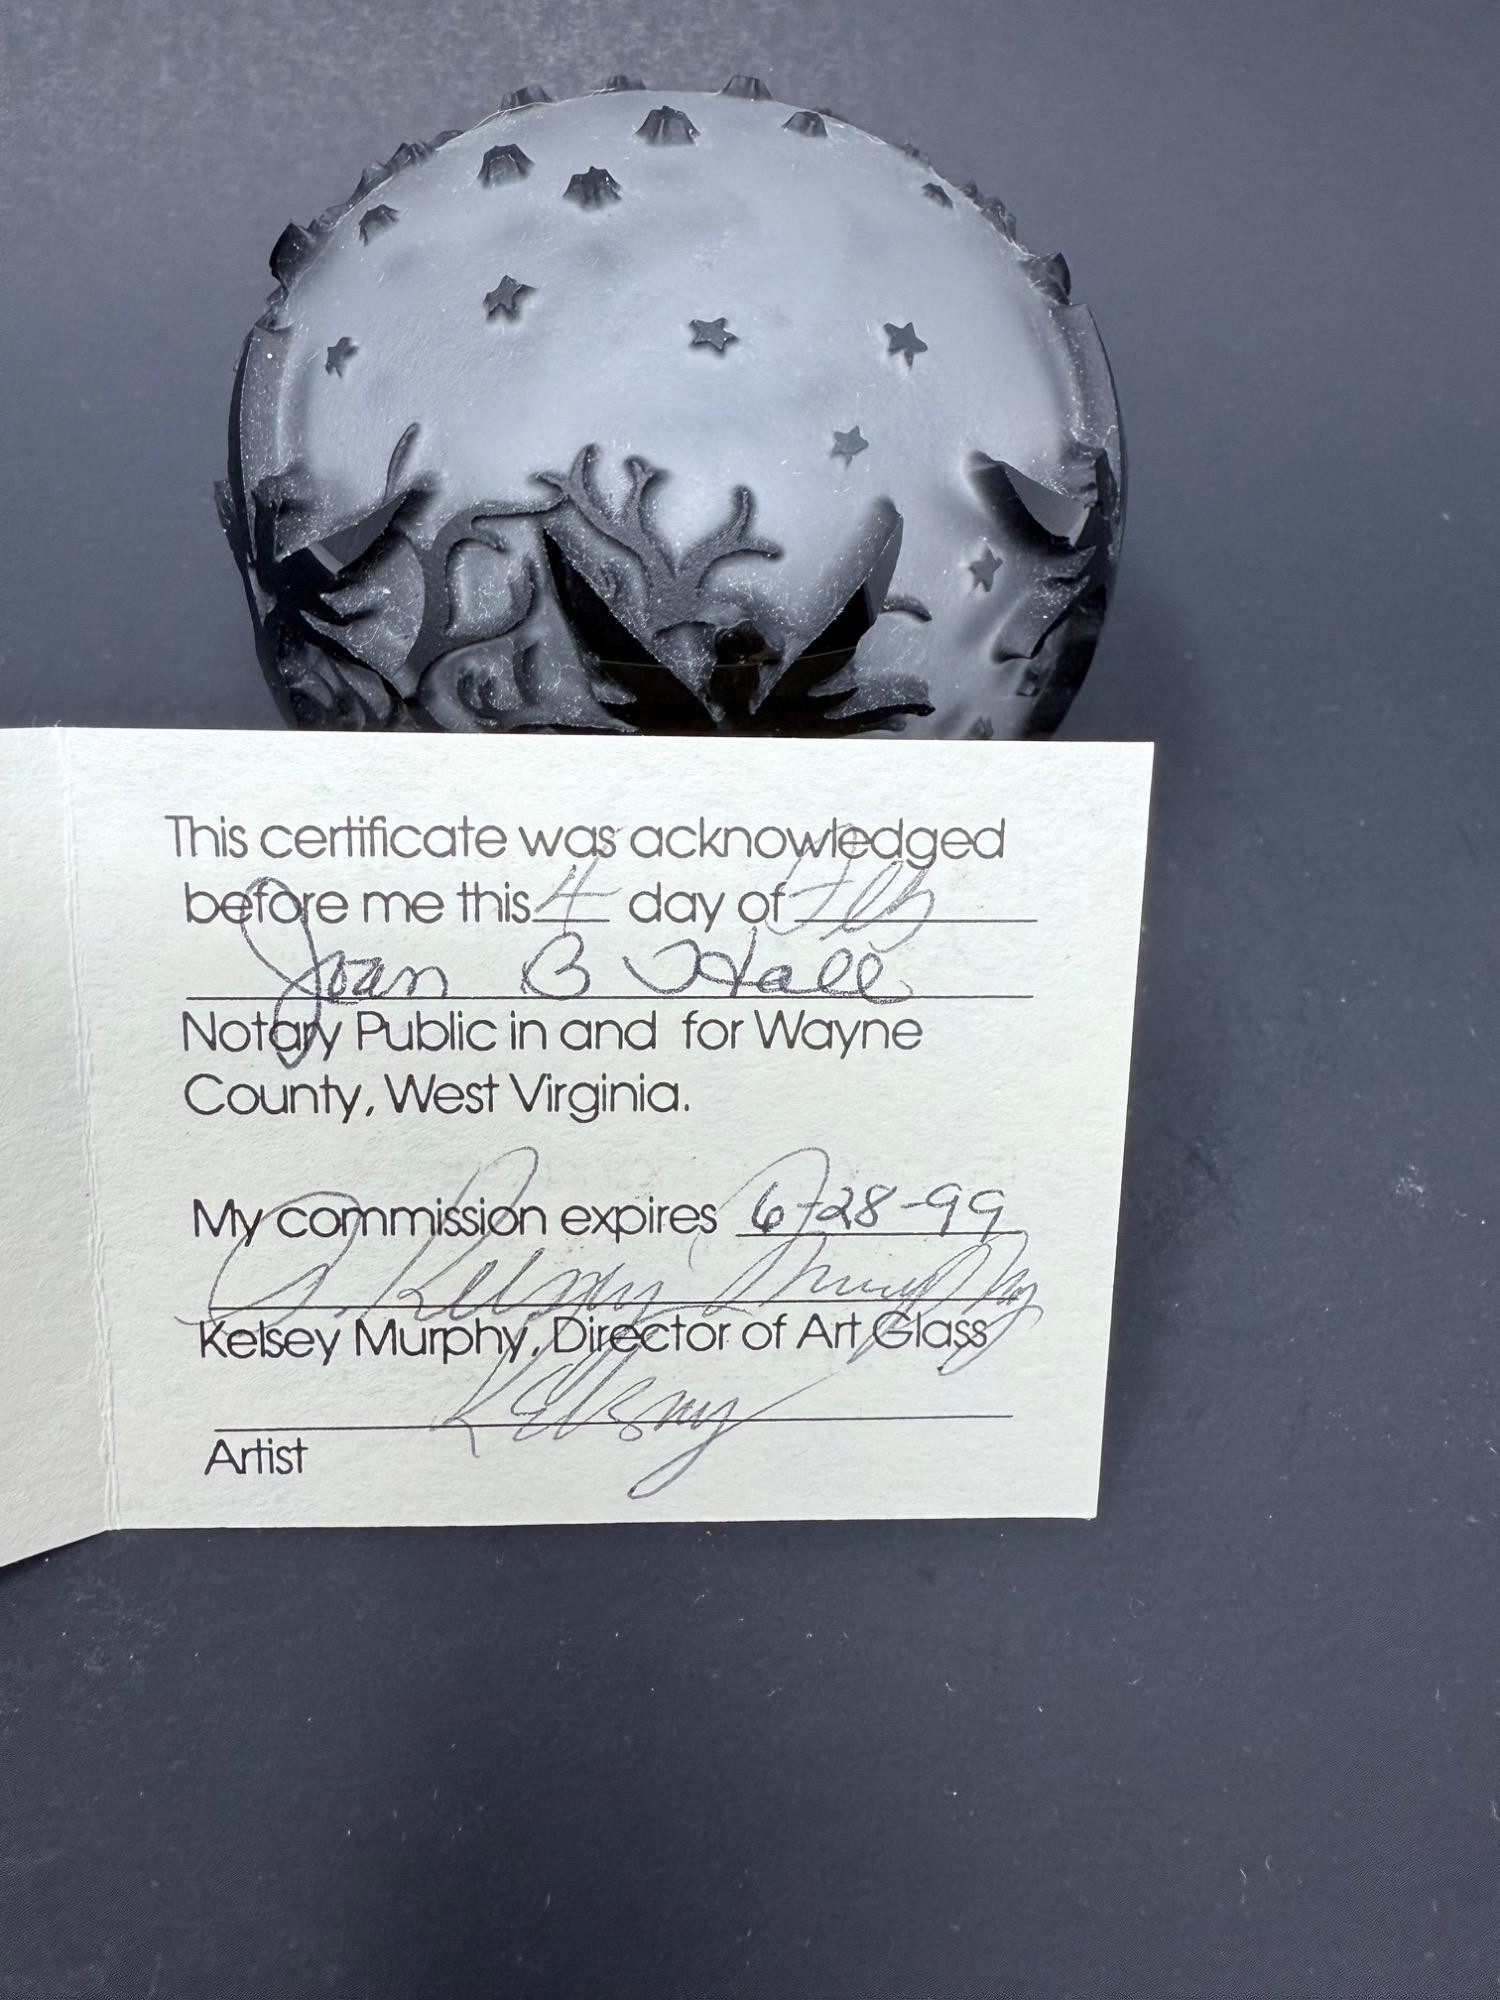 This certificate was acknowledged
before me this 4 day of Feb
Joan B Hall
Notary Public in and for Wayne
County, West Virginia.
My commission expires 6-28-99
Kelsey Murphy
Kelsey Murphy, Director of Art Glass
Kelsey
Artist